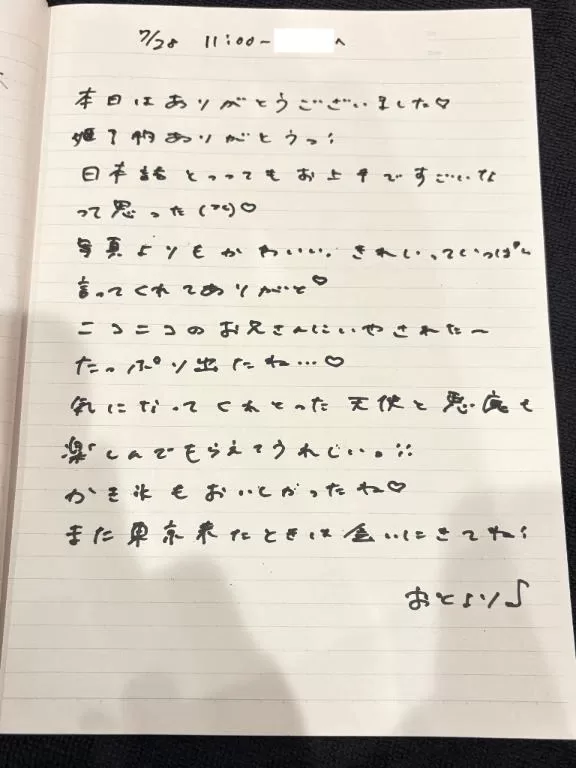 7/28 11:00~ へ
本日はありがとうございました♡
ありがとうっ!
日本語とってもお上手ですごいな
って思った ♡
写真よりもかわいい、きれいっていっぱい
言ってくれてありがと♡
ニコニコのお兄さんにいやされた~
たっぷり出たね…♡
気になってくれとった天使と悪魔も
楽しんでもらえてうれしい。
かき氷もおいしかったね♡
また東京来たときは会いにきてね!
おとより♪